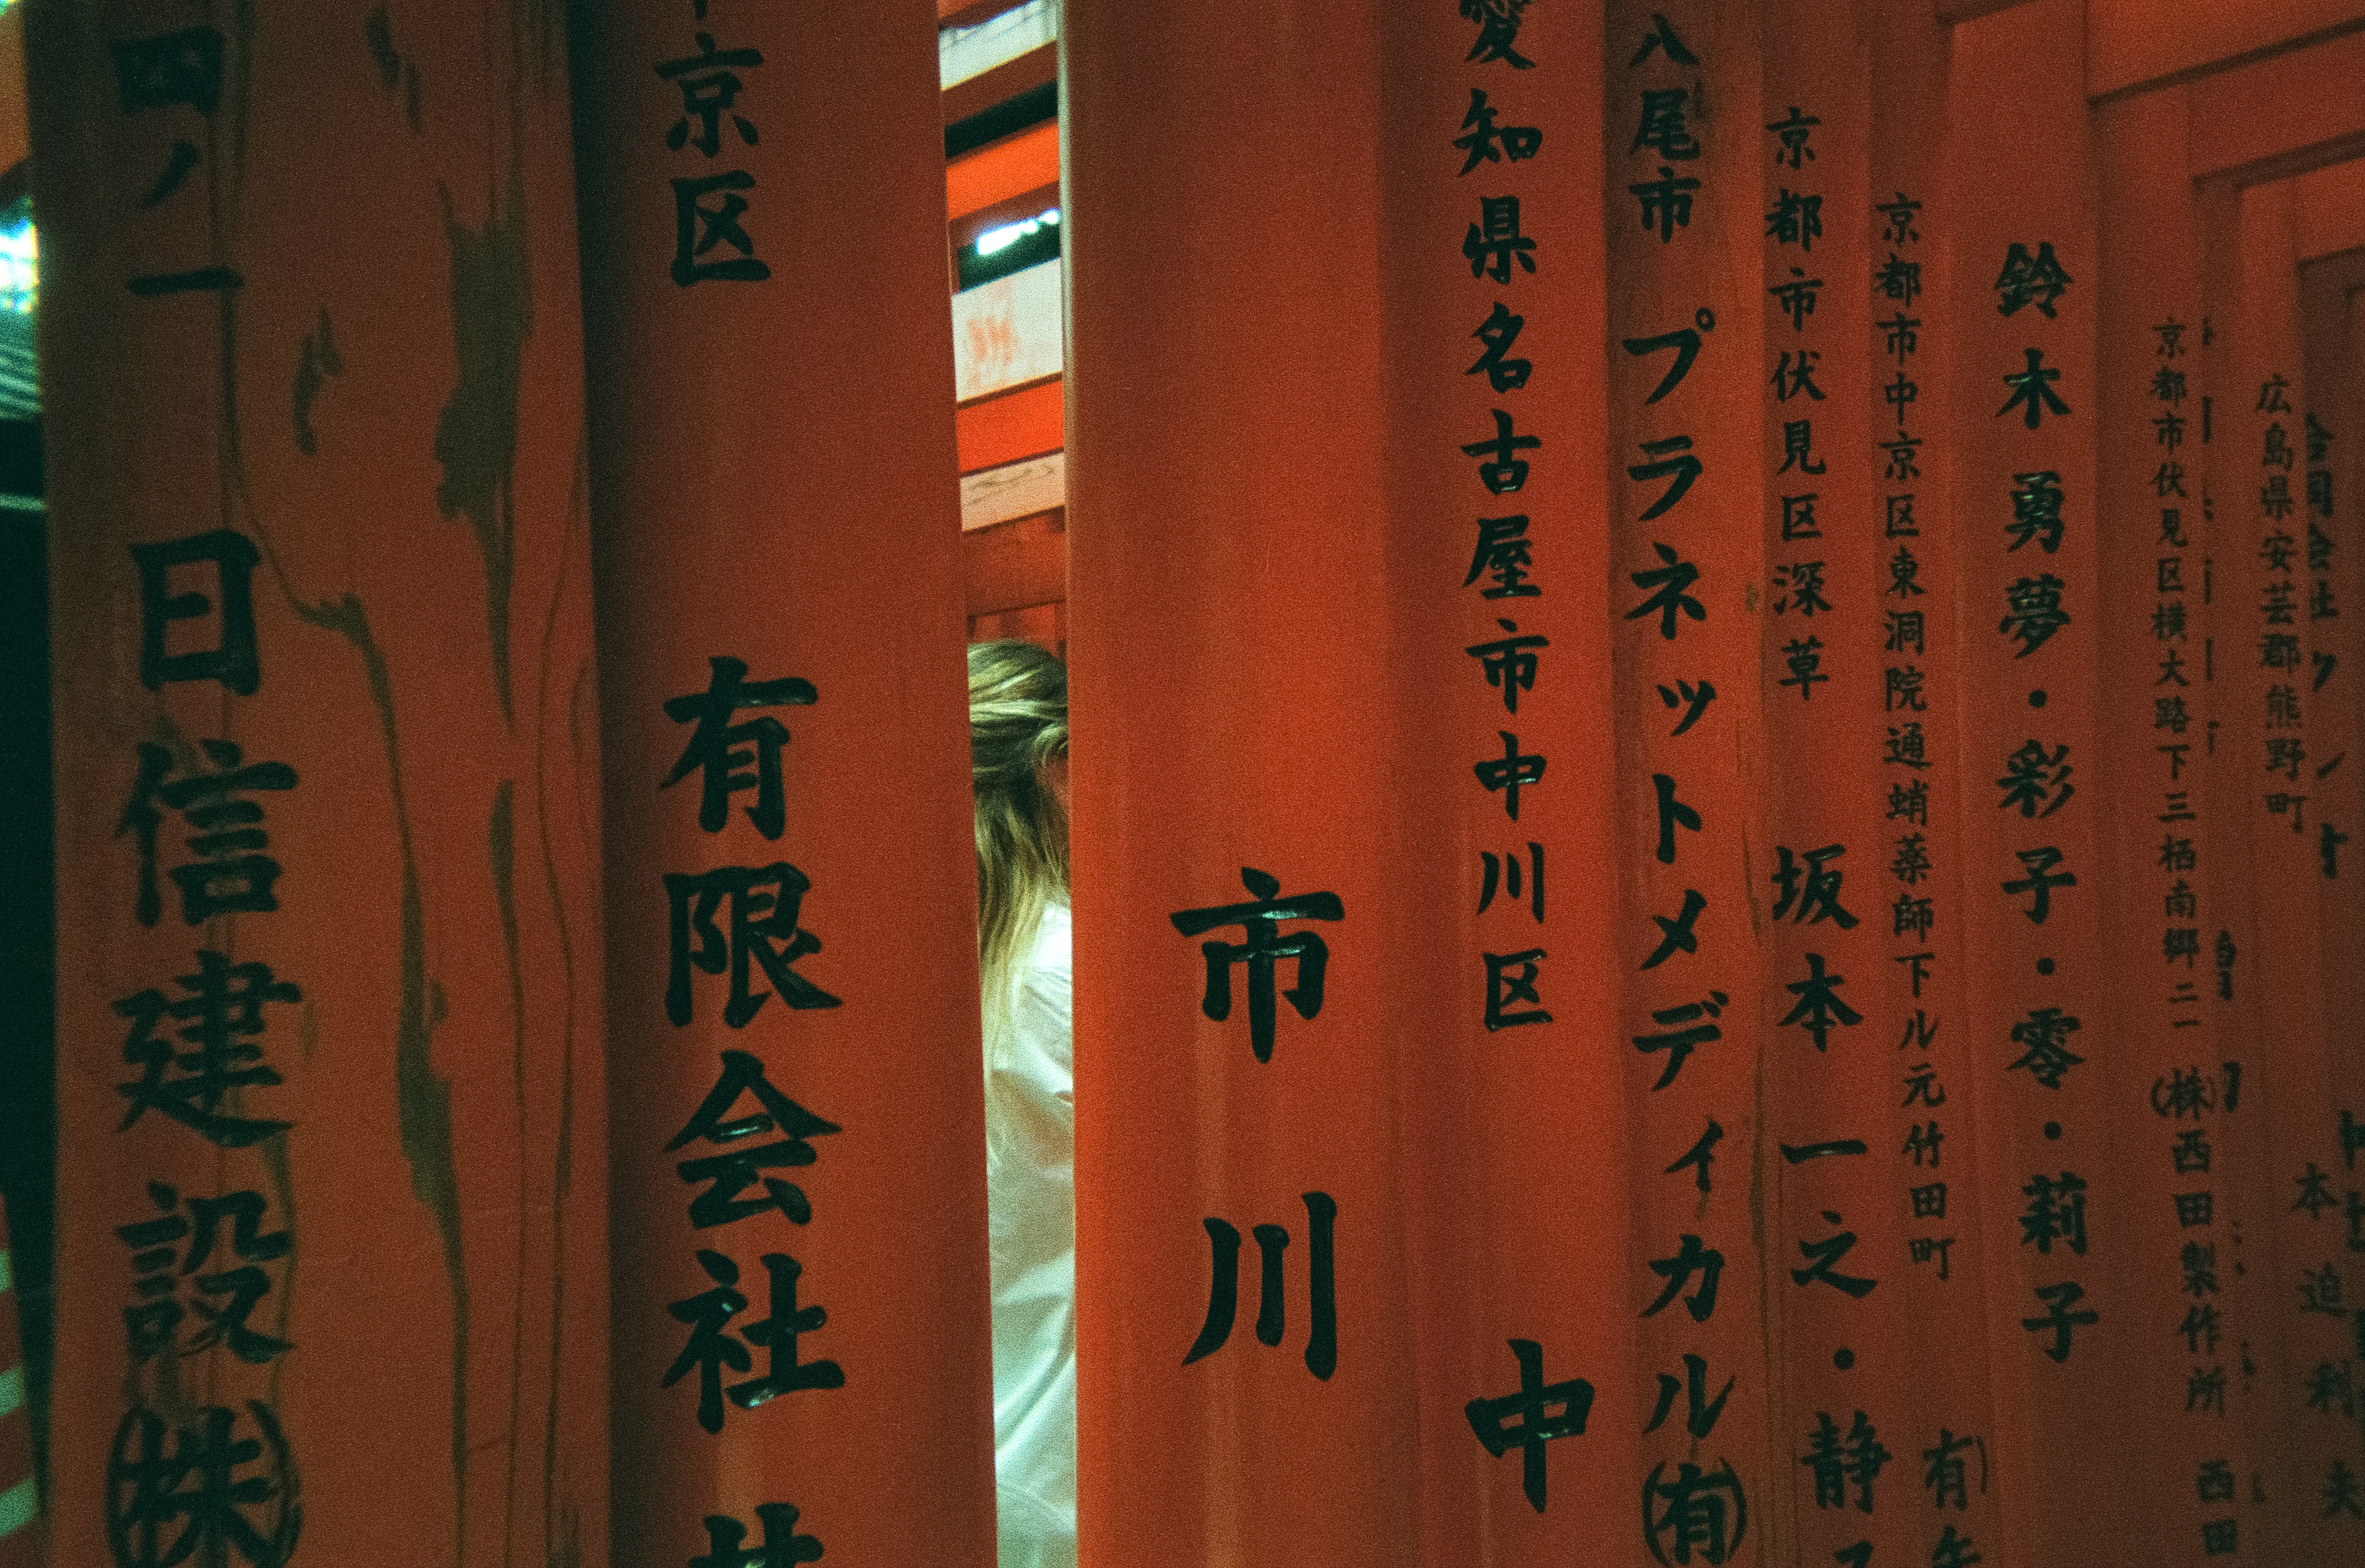 四ノ一 日信建設㈱
京区 有限会社
市川
愛知県名古屋市中川区 中
八尾市 プラネットメディカル㈲
京都市伏見区深草 坂本一之・静
京都市中京区東洞院通蛸薬師下ル元竹田町 有
鈴木勇夢・彩子・零・莉子
京都市伏見区横大路下三栖南郷二一 ㈱西田製作所 西田
広島県安芸郡熊野町 本迫利夫
合同会社